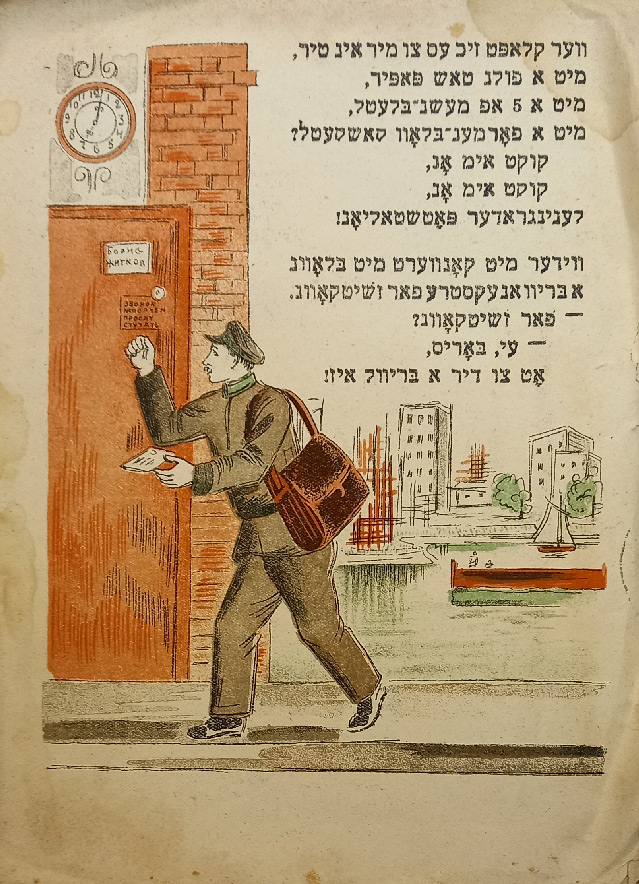 ווער קלאפּט זיכ עס צו מיר אינ טיר,
מיט א פולנ טאש פּאפּיר,
מיט א 5 אפ מעשנ־בלעטל,
מיט א פאָרמענ־בלאָוו קאשקעטל?
קוקט אימ אָנ,
קוקט אימ אָנ,
לענינגראדער פּאָטשטאליאָנ!
ווידער מיט קאָנווערט מיט בלאָוונ
א בריוו אנעקסטרע פאר זשיטקאָוונ.
— פאר זשיטקאָוונ?
— עי, באָריס,
אָט צו דיר א בריוול איז!
12 1 2 3 4 5 6 7 8 9 10 11
БОРИС
ЖИТКОВ
ЗВОНОК
ИСПОРЧЕН
ПРОШУ
СТУЧАТЬ